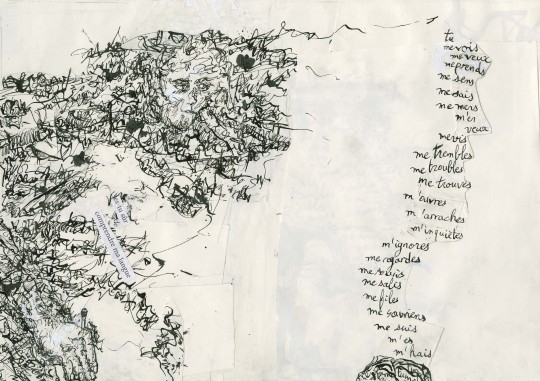 tu
me vois
me veux
me prends
me sens
me sais
me mens
m'en
veux
me vis
me trembles
me troubles
me trouves
m'ouvres
m'arraches
m'inquiètes
m'ignores
me regardes
me souris
me salis
me files
me souviens
me suis
m'es
m'hais
comprendre ma langue